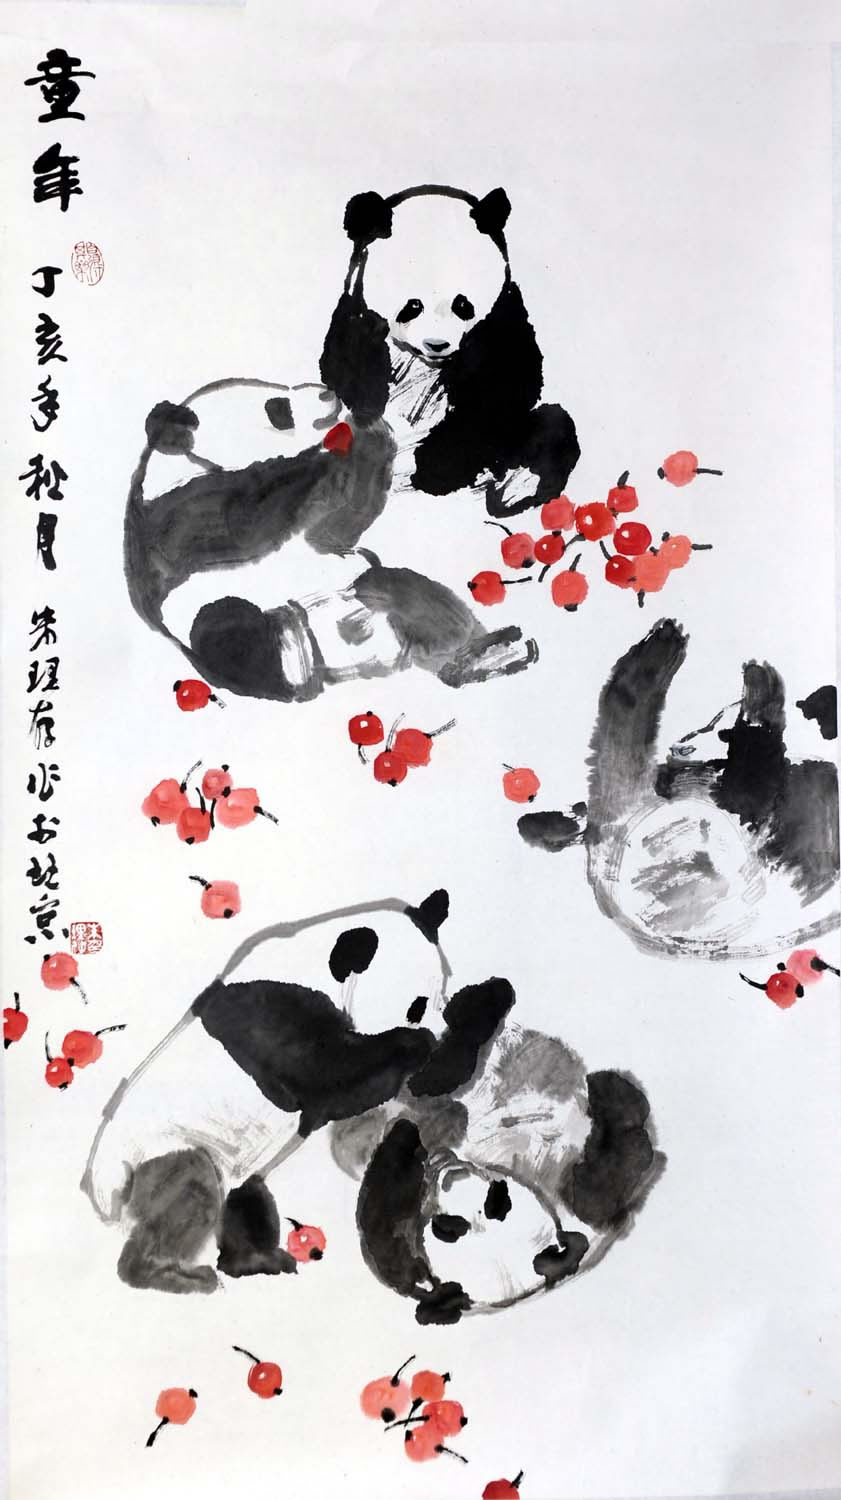 童年
丁亥年秋月 朱理存作於北京